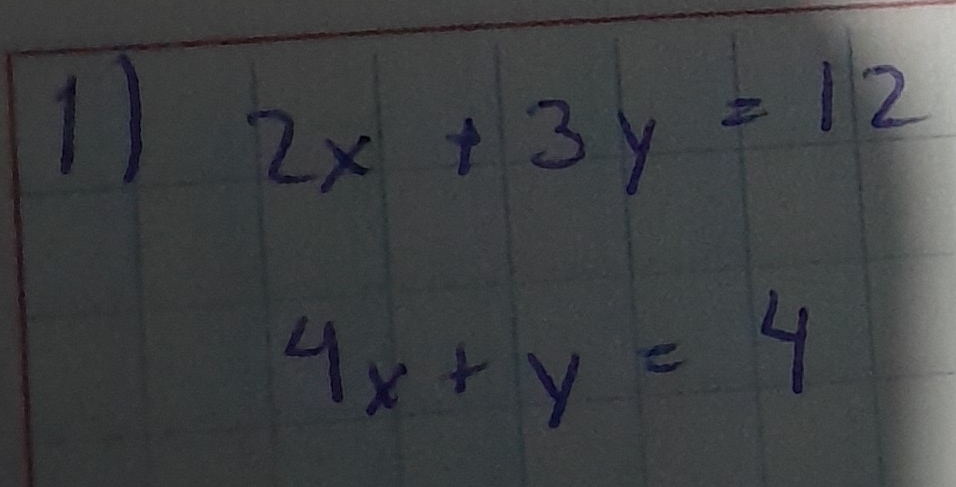 1) 2x + 3y = 12
4x + y = 4